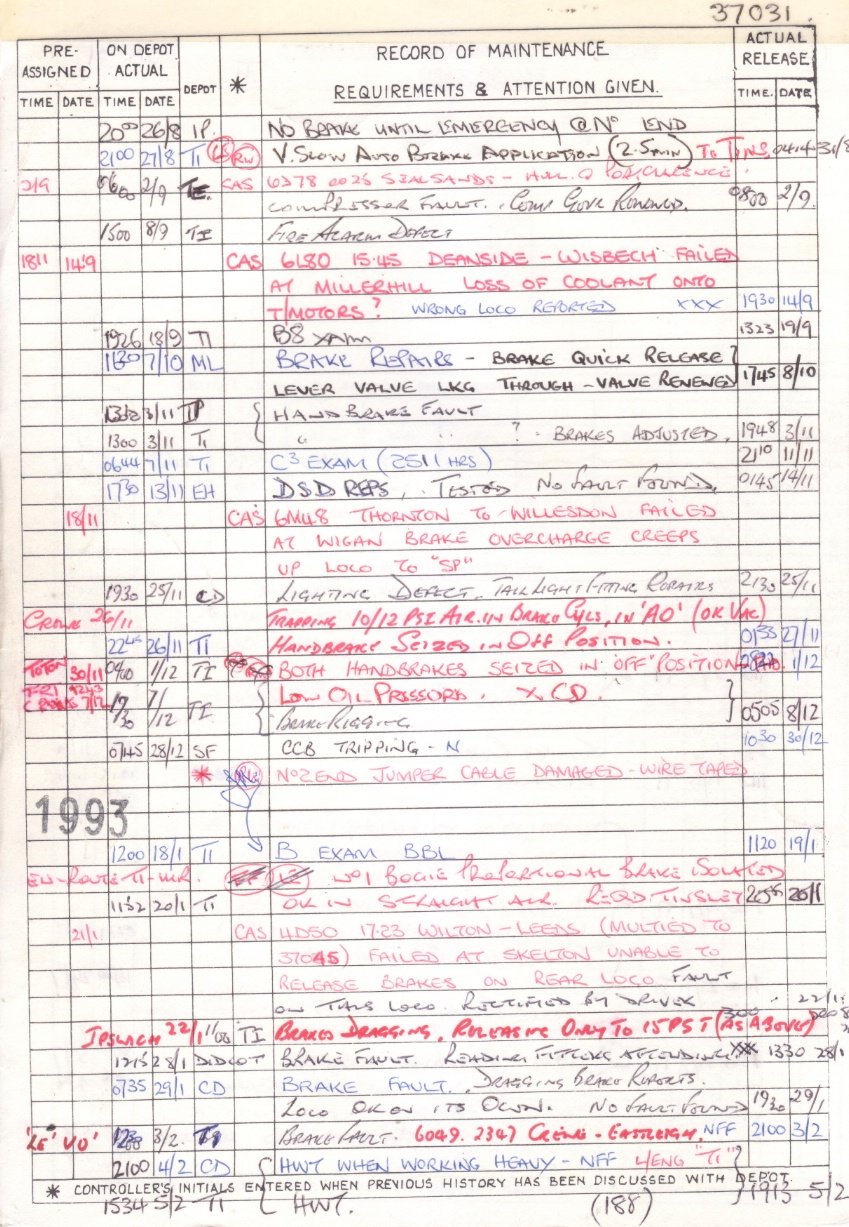 37031
PRE-ASSIGNED ON DEPOT ACTUAL DEPOT * RECORD OF MAINTENANCE REQUIREMENTS & ATTENTION GIVEN. ACTUAL RELEASE
TIME DATE TIME DATE TIME. DATE
2000 26/8 IP NO BRAKE UNTIL EMERGENCY @ No 1 END
2100 27/8 TI RW V. SLOW AUTO BRAKE APPLICATION (2.5 MIN) TO TINS 0414 31/8
2/9 0600 2/9 TE CAS 6378 0025 SEALSANDS - HULL
COMPRESSER FAULT. COMP GOVR RENEWED. 0800 2/9
1500 8/9 TI FIRE ALARM DEFECT
1811 14/9 CAS 6L80 15.45 DEANSIDE - WISBECH FAILED
AT MILLERHILL LOSS OF COOLANT ONTO
T/MOTORS? WRONG LOCO REPORTED XXX 1930 14/9
1926 18/9 TI B8 XAM 1323 19/9
1130 7/10 ML BRAKE REPAIRS - BRAKE QUICK RELEASE
LEVER VALVE LKG THROUGH - VALVE RENEWED 1745 8/10
3/11 IP HAND BRAKE FAULT
1300 3/11 TI " " ? - BRAKES ADJUSTED. 1948 3/11
0644 7/11 TI C3 EXAM (2511 HRS) 2110 11/11
1730 13/11 EH DSD REPS, TESTED NO FAULT FOUND. 0145 14/11
18/11 CAS 6M48 THORNTON TO WILLESDON FAILED
AT WIGAN BRAKE OVERCHARGE CREEPS
UP LOCO TO "SP"
1930 25/11 CD LIGHTING DEFECT. TAIL LIGHT FITTING REPAIRS 2130 25/11
CREWE 26/11 TRAPPING 10/12 PSI AIR IN BRAKE CYLS, IN 'AO' (OK VAC)
2245 26/11 TI HANDBRAKE SEIZED IN OFF POSITION. 0135 27/11
TOTON 30/11 0400 1/12 TI BOTH HANDBRAKES SEIZED IN "OFF" POSITION 1/12
7/12 LOW OIL PRESSURE. X CD.
1730 7/12 TI BRAKE RIGGING 0505 8/12
0745 28/12 SF CCB TRIPPING - N 1030 30/12
* No 2 END JUMPER CABLE DAMAGED - WIRE TAPED
1993
1200 18/1 TI B EXAM BBL 1120 19/1
EN-ROUTE-TI-MR. No1 BOGIE PROPORTIONAL BRAKE ISOLATED
1152 20/1 TI OK IN STRAIGHT AIR. REQD TINSLEY 20/1
21/1 CAS 4D50 17.23 WILTON - LEEDS (MULTIED TO
37045) FAILED AT SKELTON UNABLE TO
RELEASE BRAKES ON REAR LOCO FAULT
ON THIS LOCO. RECTIFIED BY DRIVER 22/1
IPSWICH 22/1 1100 TI BRAKES DRAGGING, RELEASING ONLY TO 15PSI (AS ABOVE)
1215 28/1 DIDCOT BRAKE FAULT. READING FITTERS ATTENDING XXX 1330 28/1
0735 29/1 CD BRAKE FAULT. DRAGGING BRAKE REPORTS.
LOCO OK ON ITS OWN. NO FAULT FOUND 1930 29/1
3/2. TI BRAKE FAULT. 6049. 2347 CREWE - EASTLEIGH, NFF 2100 3/2
2100 4/2 CD HWT WHEN WORKING HEAVY - NFF 4/ENG "TI"
* CONTROLLER'S INITIALS ENTERED WHEN PREVIOUS HISTORY HAS BEEN DISCUSSED WITH DEPOT.
1534 5/2 TI HWT. (188) 1913 5/2